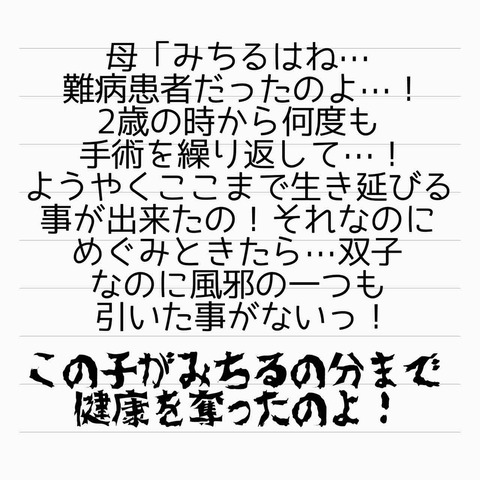 母「みちるはね…
難病患者だったのよ…！
2歳の時から何度も
手術を繰り返して…！
ようやくここまで生き延びる
事が出来たの！それなのに
めぐみときたら…双子
なのに風邪の一つも
引いた事がないっ！
この子がみちるの分まで
健康を奪ったのよ！